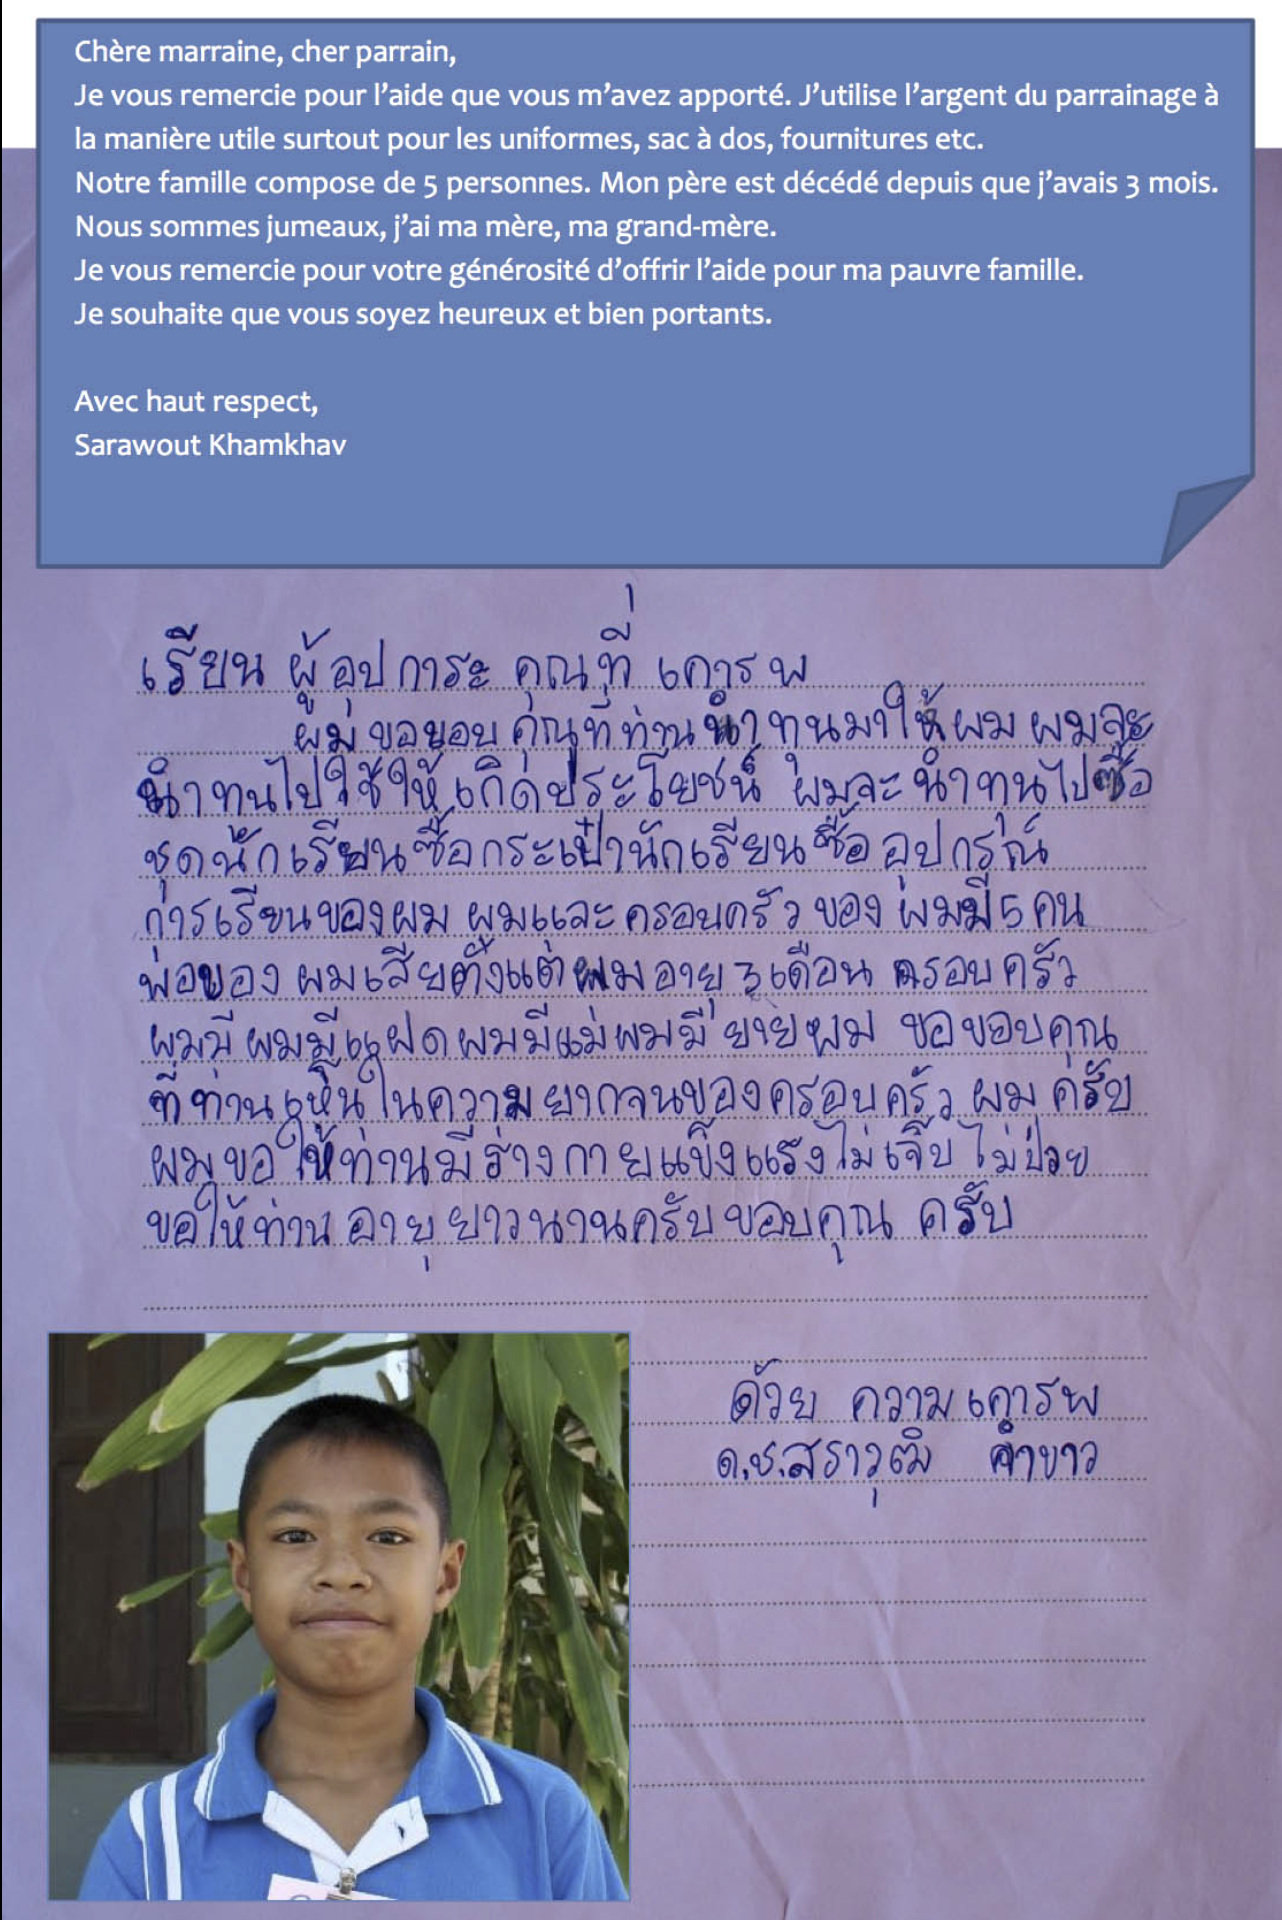 Chère marraine, cher parrain,
Je vous remercie pour l’aide que vous m’avez apporté. J’utilise l’argent du parrainage à
la manière utile surtout pour les uniformes, sac à dos, fournitures etc.
Notre famille compose de 5 personnes. Mon père est décédé depuis que j’avais 3 mois.
Nous sommes jumeaux, j’ai ma mère, ma grand-mère.
Je vous remercie pour votre générosité d’offrir l’aide pour ma pauvre famille.
Je souhaite que vous soyez heureux et bien portants.
Avec haut respect,
Sarawout Khamkhav
เรียน ผู้อุปการะ คุณที่ เคารพ
ผมขอขอบคุณที่ท่านนำทุนมาให้ผม ผมจะ
นำทุนไปใช้ให้เกิดประโยชน์ ผมจะนำทุนไปซื้อ
ชุดนักเรียนซื้อกระเป๋านักเรียนซื้ออุปกรณ์
การเรียนของผม ผมและครอบครัวของผมมี 5 คน
พ่อของผมเสียตั้งแต่ผมอายุ 3 เดือน ครอบครัว
ผมมี ผมมีแฝดผมมีแม่ผมมียายผม ขอขอบคุณ
ที่ท่านเห็นในความยากจนของครอบครัวผมครับ
ผมขอให้ท่านมีร่างกายแข็งแรงไม่เจ็บไม่ป่วย
ขอให้ท่านอายุยาวนานครับขอบคุณ ครับ
ด้วย ความเคารพ
ด.ช.สราวุฒิ คำขาว